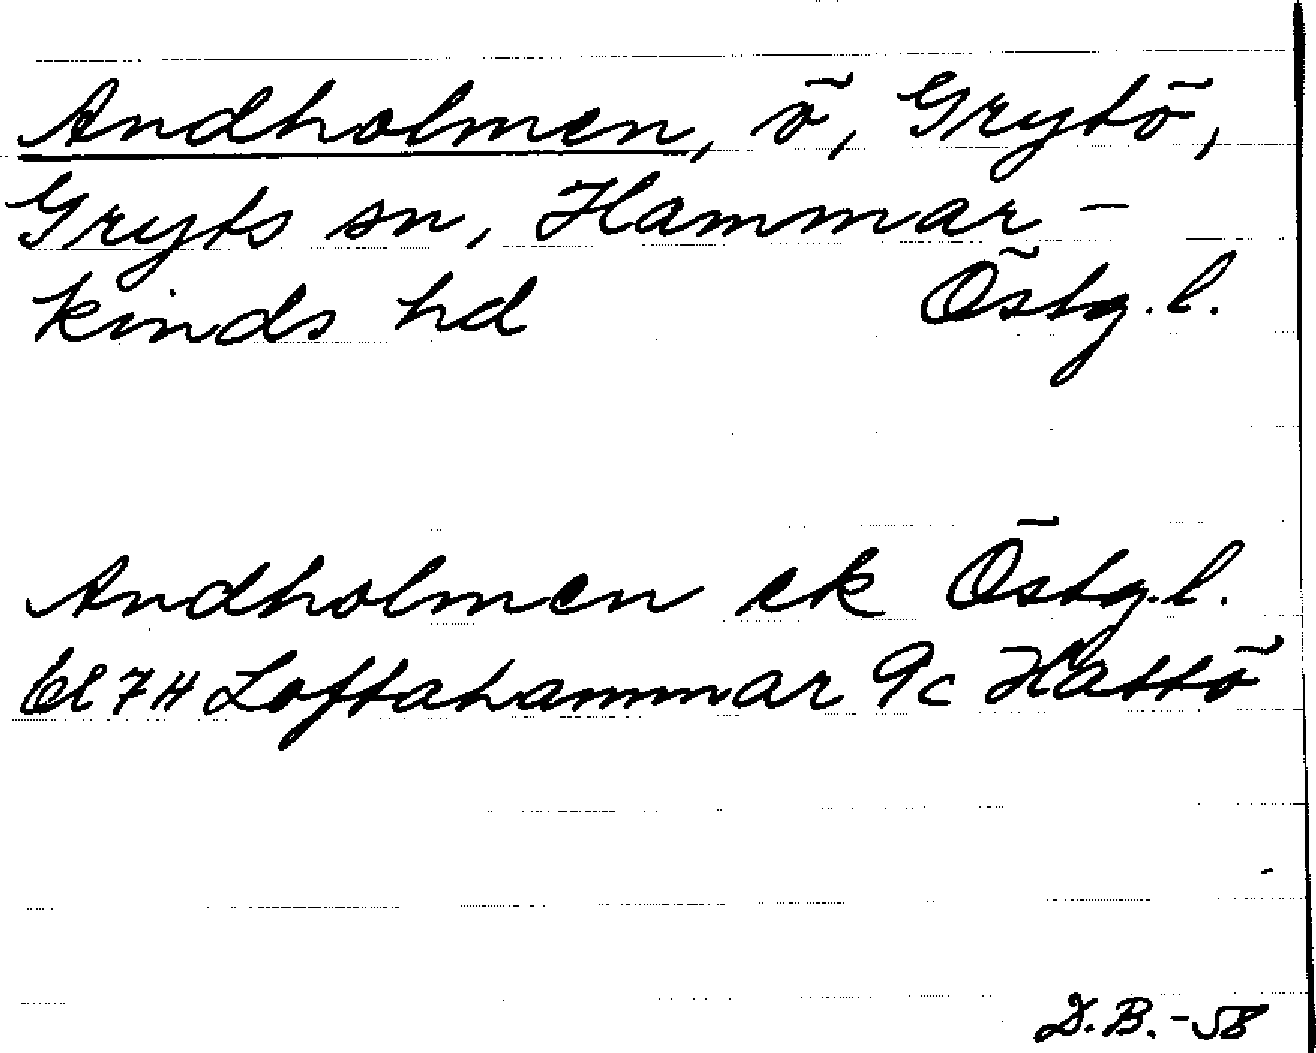 Andholmen, ö, Grytö,
Gryts sn, Hammar-
kinds hd Östg.l.
Andholmen ek Östg.l.
6l 7H Loftahammar 9c Hattö
D.B.-58